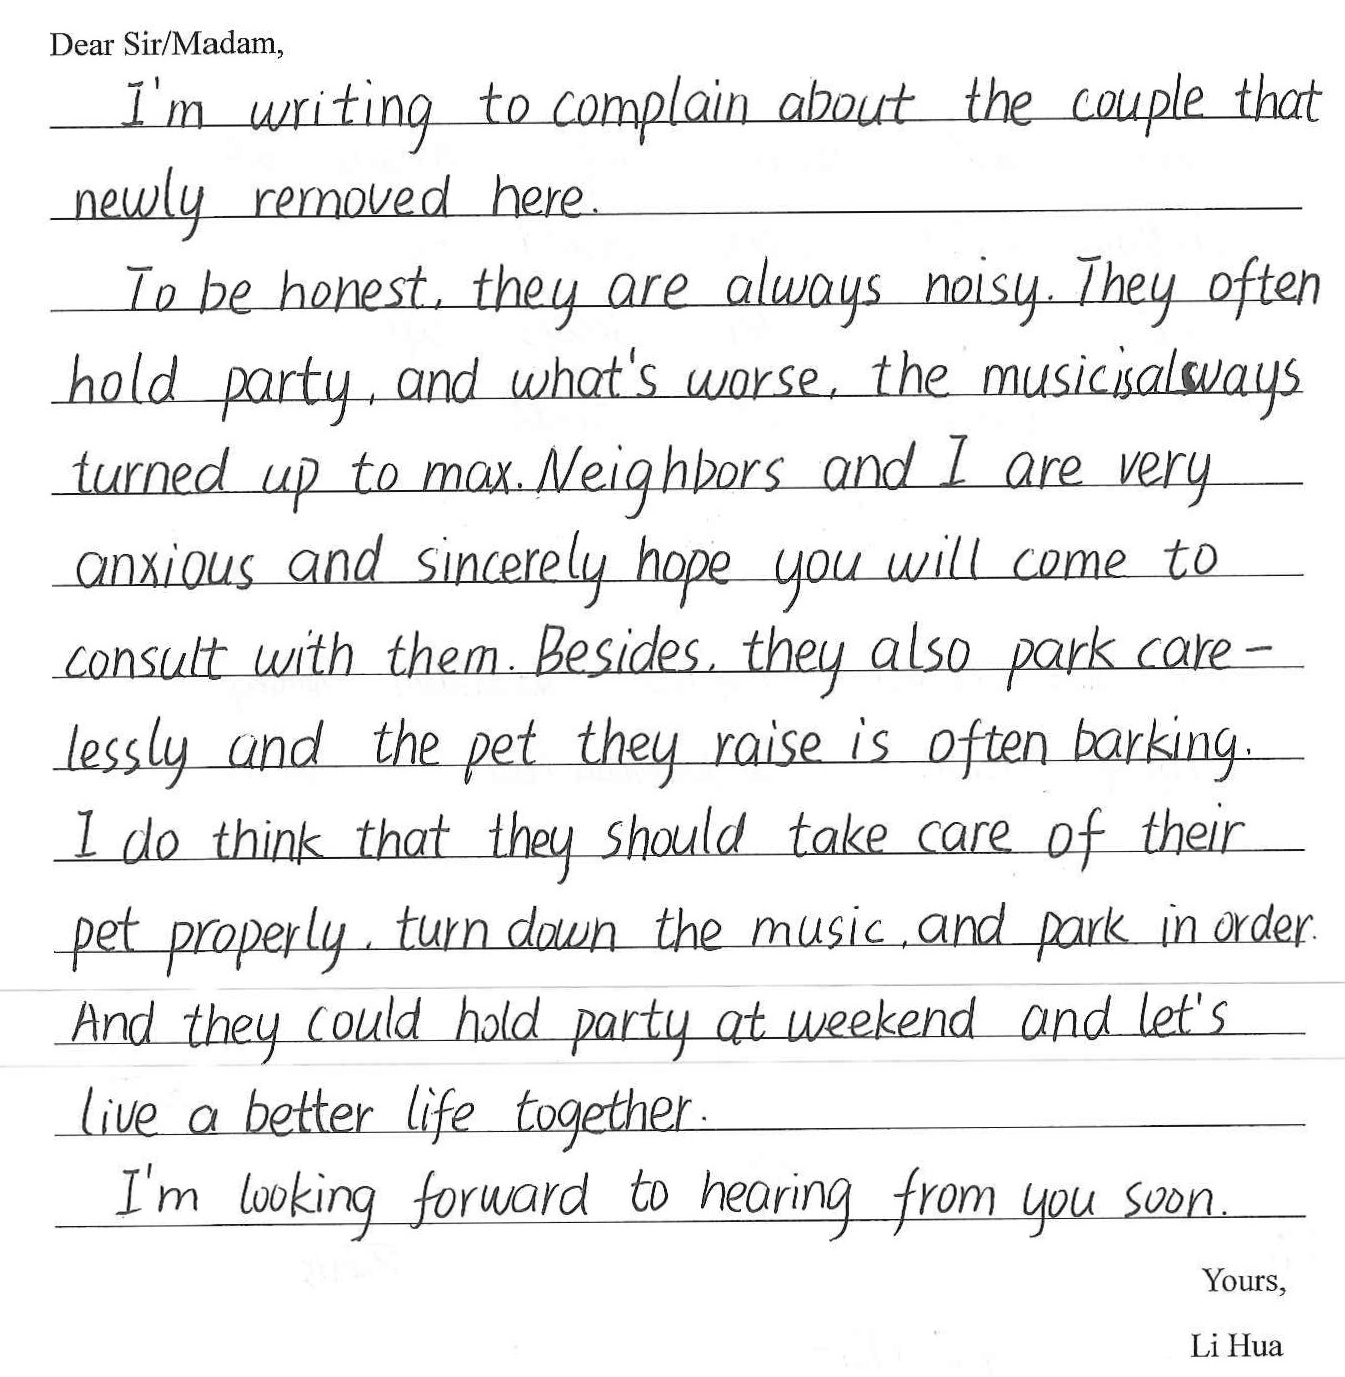 Dear Sir/Madam,
I'm writing to complain about the couple that
newly removed here.
To be honest, they are always noisy. They often
hold party, and what's worse, the music is always
turned up to max. Neighbors and I are very
anxious and sincerely hope you will come to
consult with them. Besides, they also park care-
lessly and the pet they raise is often barking.
I do think that they should take care of their
pet properly, turn down the music, and park in order.
And they could hold party at weekend and let's
live a better life together.
I'm looking forward to hearing from you soon.
Yours,
Li Hua